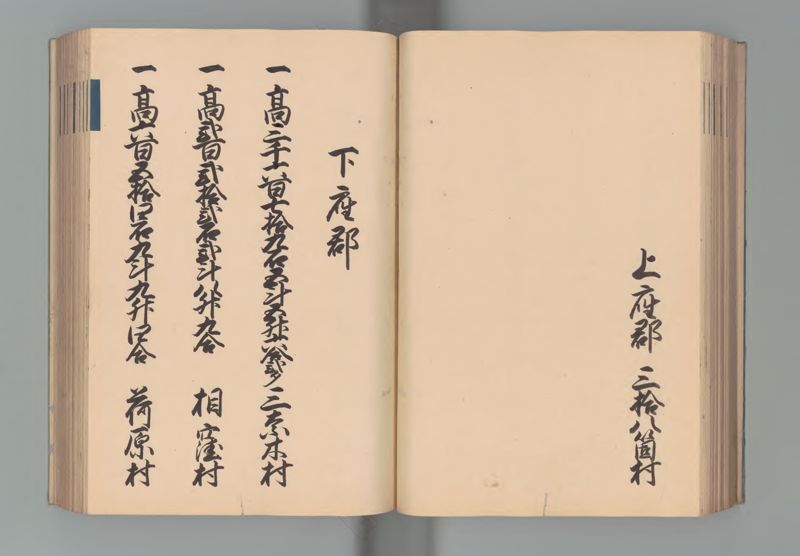 上座郡 三拾八箇村
下座郡
一高三千六百七拾九石五斗五升六合弐夕 三奈木村
一高弐百弐拾弐石弐斗八升九合 相窪村
一高六百五拾四石九斗九升四合 荷原村